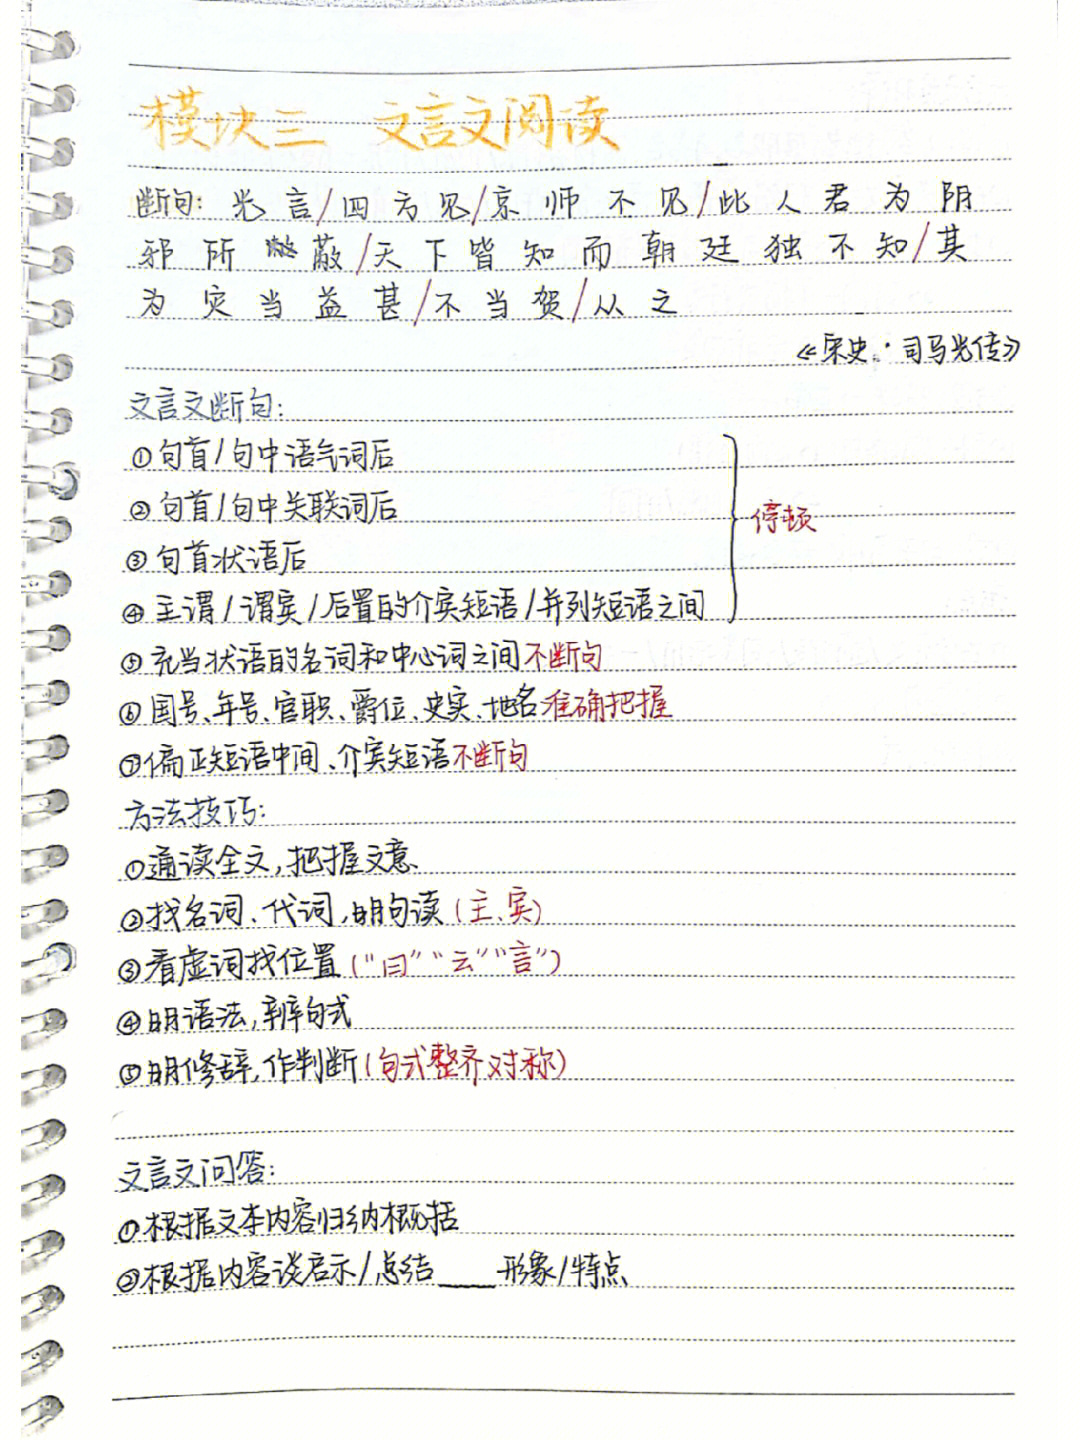 模块三 文言文阅读
断句: 光言/四方见/京师不见/此人君为阴
邪所蔽/天下皆知而朝廷独不知/其
为灾当益甚/不当贺/从之
《宋史·司马光传》
文言文断句:
①句首/句中语气词后
②句首/句中关联词后
③句首状语后
④主谓/谓宾/后置的介宾短语/并列短语之间
停顿
⑤充当状语的名词和中心词之间不断句
⑥国号、年号、官职、爵位、史实、地名准确把握
⑦偏正短语中间、介宾短语不断句
方法技巧:
①通读全文,把握文意、
②找名词、代词,明句读(主、宾)
③看虚词找位置("曰""云""言")
④明语法,辨句式
⑤明修辞,作判断(句式整齐对称)
文言文问答:
①根据文本内容归纳概括
②根据内容谈启示/总结____形象/特点